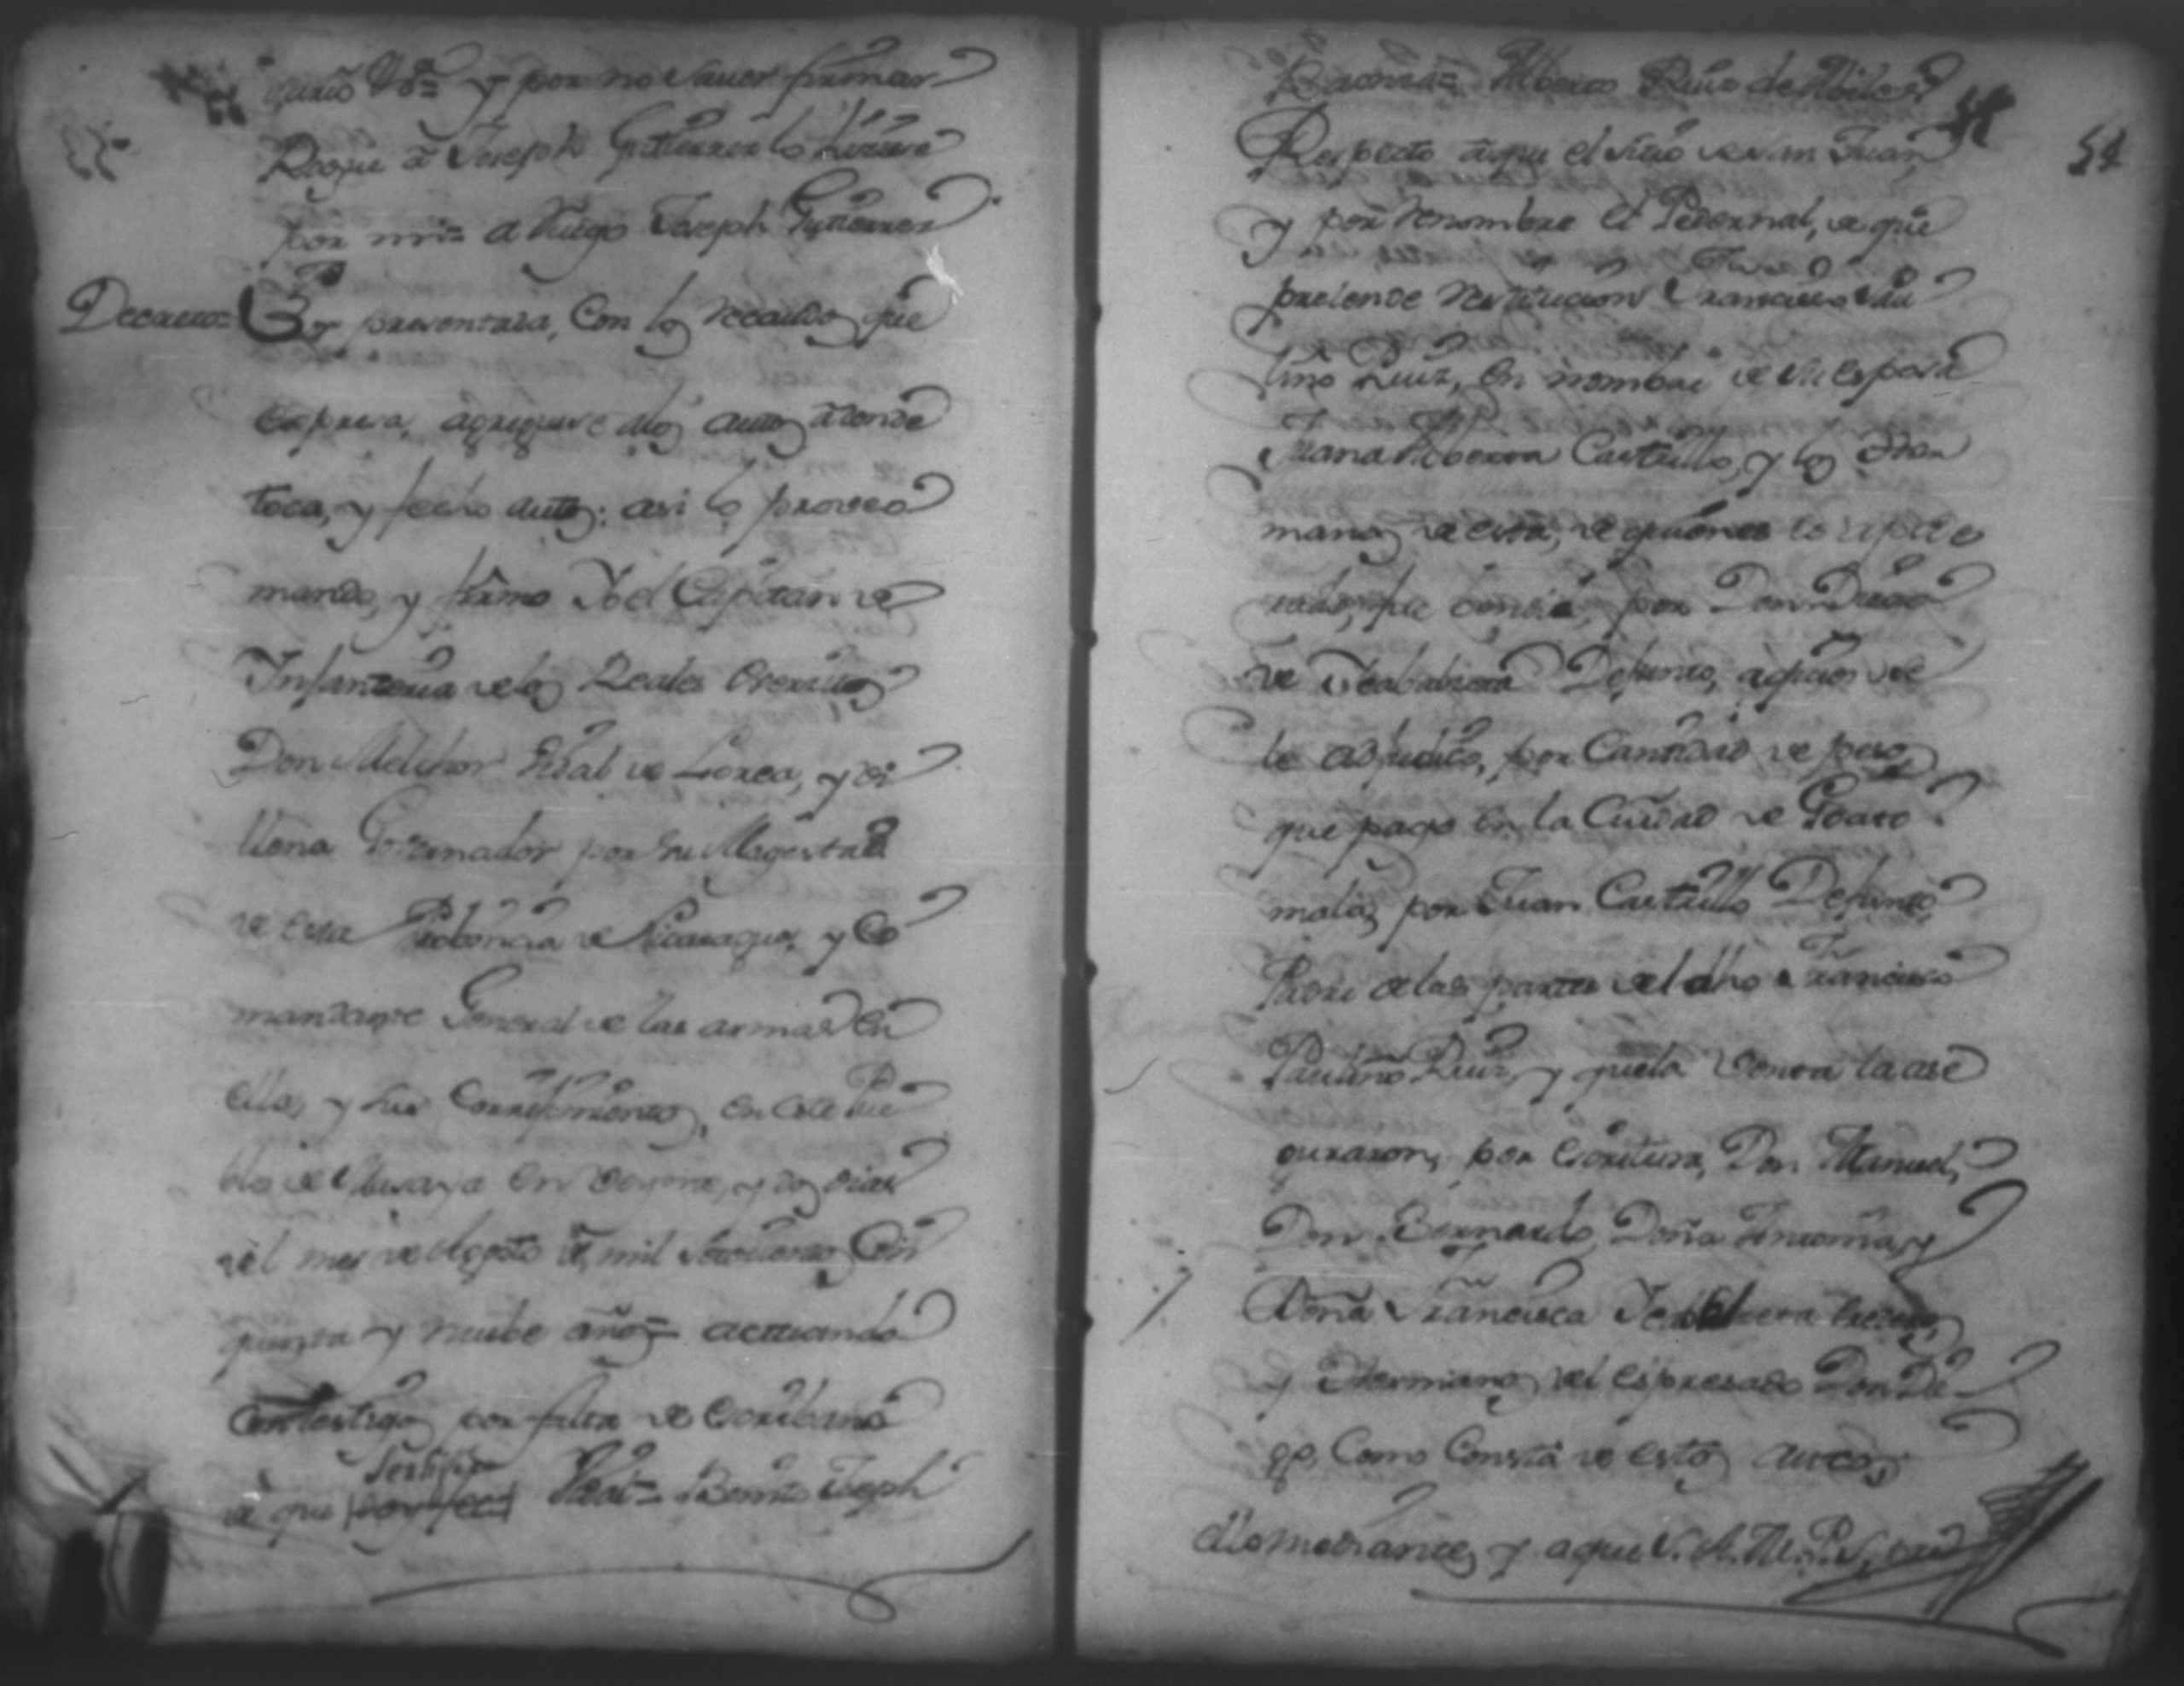 y por no saver firmar
Rogue â Joseph Gutierrez lo hiziese
por mi= a Ruego Joseph Gutierrez
Decreto= Por presentada, Con los recaudos que
expresa, agreguese alos autos adonde
toca, y fecho autos: asi lo proveo
mando, y firmo Yo el Capitan de
Infanteria delos Reales Exercitos
Don Melchor Vidal de Lorca, y Vi
llena Governador por su Magestad
de esta Probincia de Nicaragua, y Co
mandante General de las armas en
ella, y sus Corregimientos, en este Pue
blo de Masaya en veynte, y dos dias
del mes de Agosto de mil setecientos Cin
quenta y nuebe años= actuando
Con testigos por falta de Escribano
de que Sertifico Vidal= Benito Joseph
Respecto aque el sitio de San Juan,
y por renombre el Pedernal, de que
pretende restitucion Francisco Pau
lino Ruiz, en nombre de su esposa
Juana Alberta Castrillo, y los Her
manos de esta, de quienes es apode
rado, fue por Don Diego
de Defunto, aquien se
le adjudicó, por Cantidad de pesos
que pago en la Ciudad de Goate
mala, por Juan Castrillo Defunto
Padre delas partes del dho Francisco
Paulino Ruiz, y que la venta la ase
guraron, por escritura, Don Manuel,
Don Bernardo, Doña Antonia, y
Doña Francisca
y Hermanos del espresado Don Die
go, Como Consta de estos autos,
54